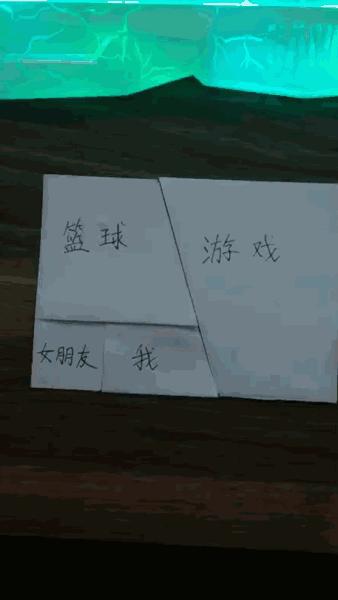 篮球
游戏
女朋友
我